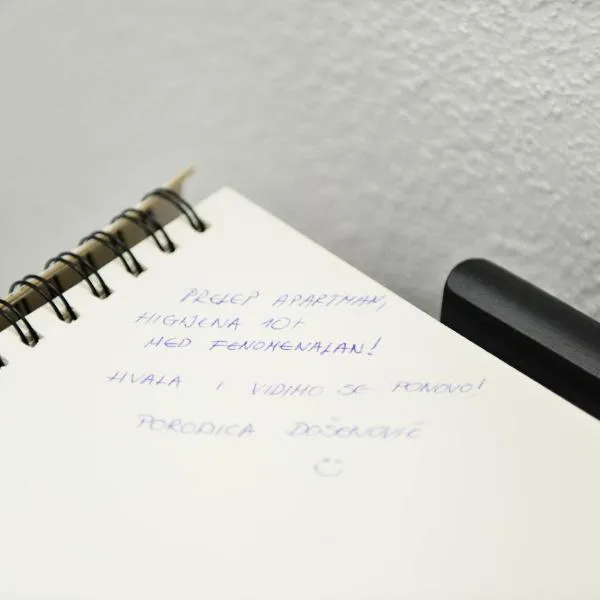 PRELEP APARTMAN,
HIGIJENA 10+
MED FENOMENALAN!
HVALA I VIDIMO SE PONOVO!
PORODICA DOŠENOVIĆ